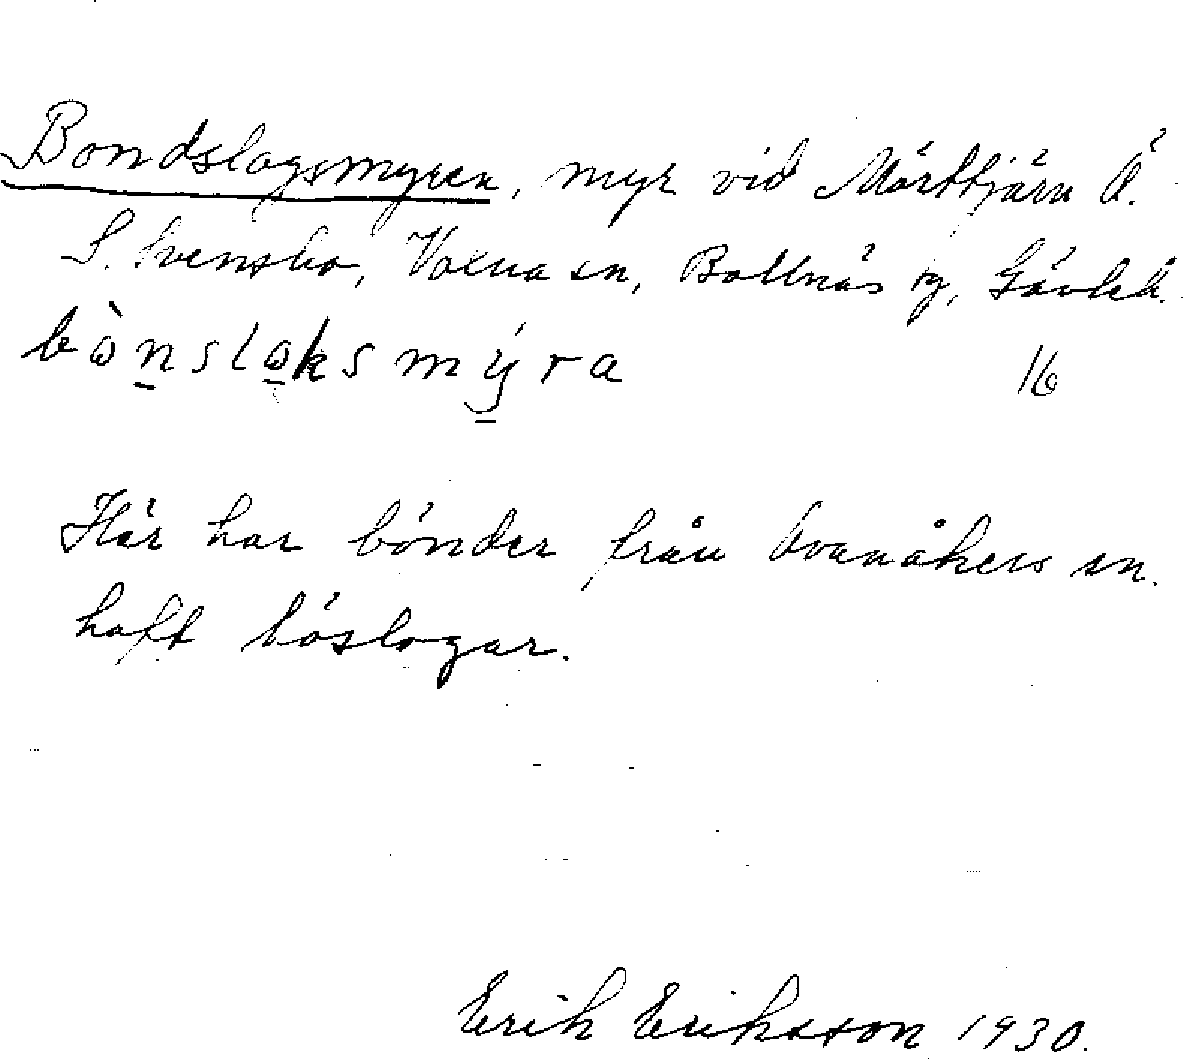 Bondslagsmyren, myr vid Mörttjärn Ö.
S. Svensbo, Voxna sn, Bollnäs tg, Gävleb.
bònslaksmýra 16
Här har bönder från Ovanåkers sn.
haft böslogar.
Erik Eriksson 1930.